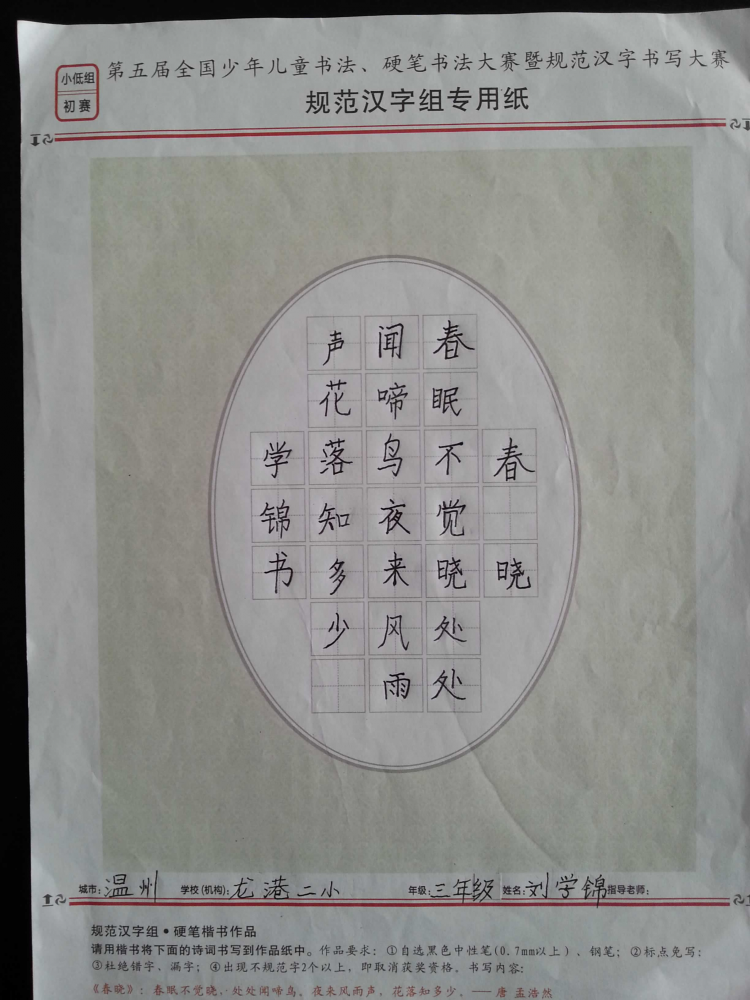 小低组
初赛
第五届全国少年儿童书法、硬笔书法大赛暨规范汉字书写大赛
规范汉字组专用纸
春晓
春眠不觉晓处处
闻啼鸟夜来风雨
声花落知多少
学锦书
城市：温州 学校(机构)：龙港二小 年级：三年级 姓名：刘学锦 指导老师：
规范汉字组·硬笔楷书作品
请用楷书将下面的诗词书写到作品纸中。作品要求：①自选黑色中性笔(0.7mm以上)、钢笔；②标点免写；
③杜绝错字、漏字；④出现不规范字2个以上，即取消获奖资格。书写内容：
《春晓》：春眠不觉晓，处处闻啼鸟。夜来风雨声，花落知多少。——唐 孟浩然